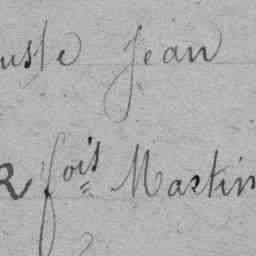 uste Jean
R fois Martin